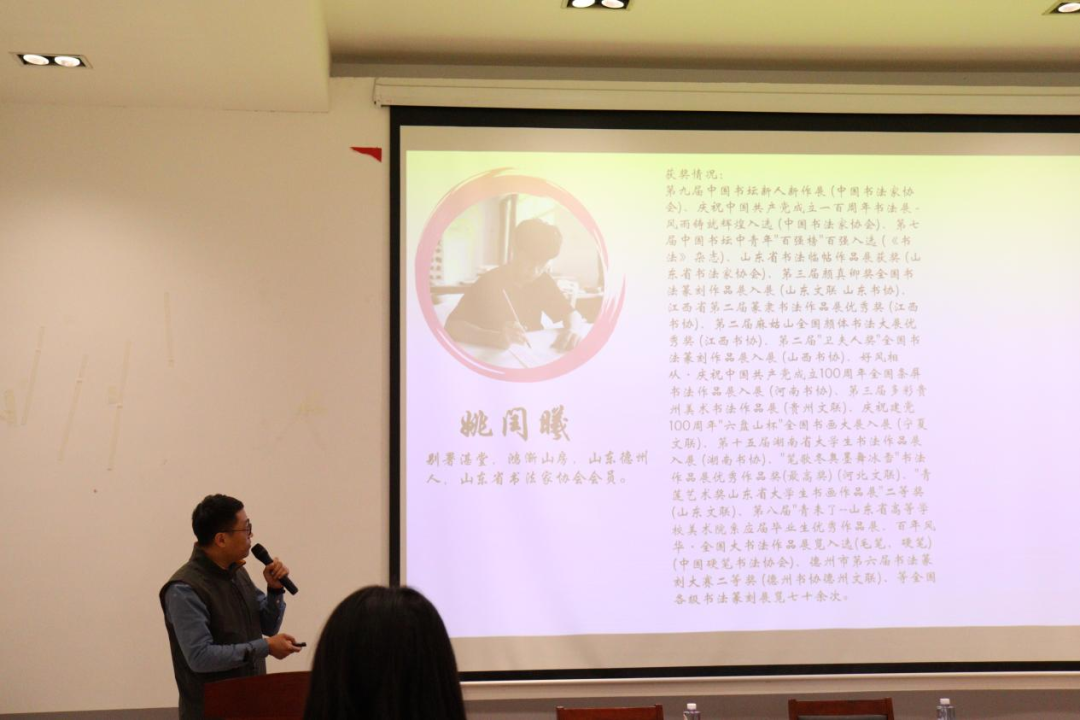 姚闰曦
别署湛堂、鸿渐山房，山东德州
人，山东省书法家协会会员。
获奖情况：
第九届中国书坛新人新作展(中国书法家协
会)、庆祝中国共产党成立一百周年书法展·
风雨铸就辉煌入选(中国书法家协会)、第七
届中国书坛中青年"百强榜"百强入选(《书
法》杂志)、山东省书法临帖作品展获奖(山
东省书法家协会)、第三届颜真卿奖全国书
法篆刻作品展入展(山东文联 山东书协)、
江西省第二届篆隶书法作品展优秀奖(江西
书协)、第二届麻姑山全国颜体书法大展优
秀奖(江西书协)、第二届"卫夫人奖"全国书
法篆刻作品展入展(山西书协)、好风相
从·庆祝中国共产党成立100周年全国条屏
书法作品展入展(河南书协)、第三届多彩贵
州美术书法作品展(贵州文联)、庆祝建党
100周年"六盘山杯"全国书画大展入展(宁夏
文联)、第十五届湖南省大学生书法作品展
入展(湖南书协)、"笔歌冬奥墨舞冰雪"书法
作品展优秀作品奖(最高奖)(河北文联)、"青
莲艺术奖山东省大学生书画作品展"二等奖
(山东文联)、第八届"青未了--山东省高等学
校美术院系应届毕业生优秀作品展、百年风
华·全国大书法作品展览入选(毛笔、硬笔)
(中国硬笔书法协会)、德州市第六届书法篆
刻大赛二等奖(德州书协德州文联)、等全国
各级书法篆刻展览七十余次。